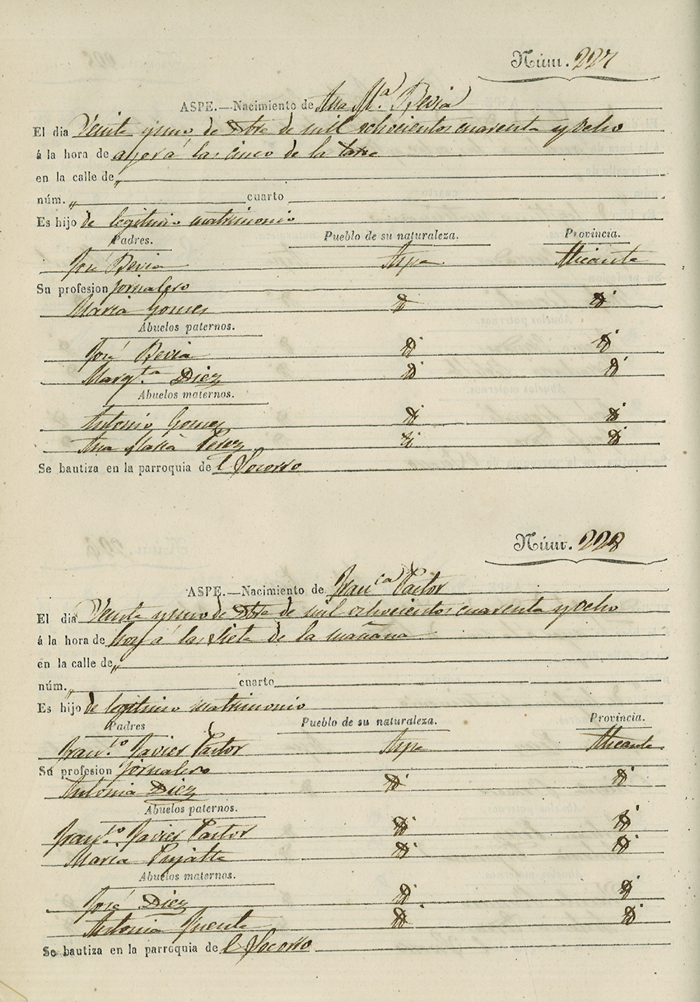 Núm. 227
ASPE.—Nacimiento de Ana Mª Bevia
El dia Veinte y uno de Stre de mil ochocientos cuarenta y ocho
á la hora de ayer á las cinco de la tarde
en la calle de „
núm. „ cuarto
Es hijo de legitimo matrimonio
Padres. Pueblo de su naturaleza. Provincia.
José Bevia Aspe Alicante
Su profesion Jornalero
Maria Gomez id id
Abuelos paternos.
José Bevia id id
Margta Diez id id
Abuelos maternos.
Antonio Gomez id id
Ana Maria Perez id id
Se bautiza en la parroquia de el Socorro
Núm. 228
ASPE.—Nacimiento de Franca Pastor
El dia Veinte y uno de Stre de mil ochocientos cuarenta y ocho
á la hora de hoy á las siete de la mañana
en la calle de „
núm. „ cuarto
Es hijo de legitimo matrimonio
Padres Pueblo de su naturaleza. Provincia.
Franco Javier Pastor Aspe Alicante
Su profesion Jornalero
Antonia Diez id id
Abuelos paternos.
Franco Javier Pastor id id
Maria id id
Abuelos maternos.
José Diez id id
Antonia Puente id id
Se bautiza en la parroquia de el Socorro